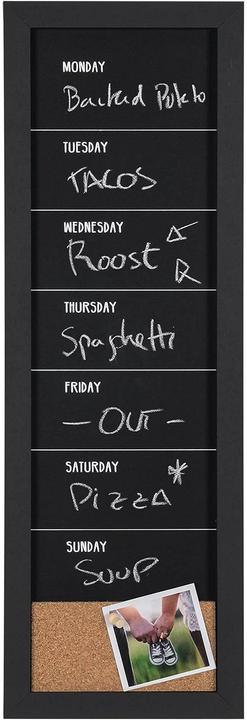 MONDAY
Backed Potato
TUESDAY
TACOS
WEDNESDAY
Roost
THURSDAY
Spaghetti
FRIDAY
- OUT -
SATURDAY
PIZZA *
SUNDAY
Soup